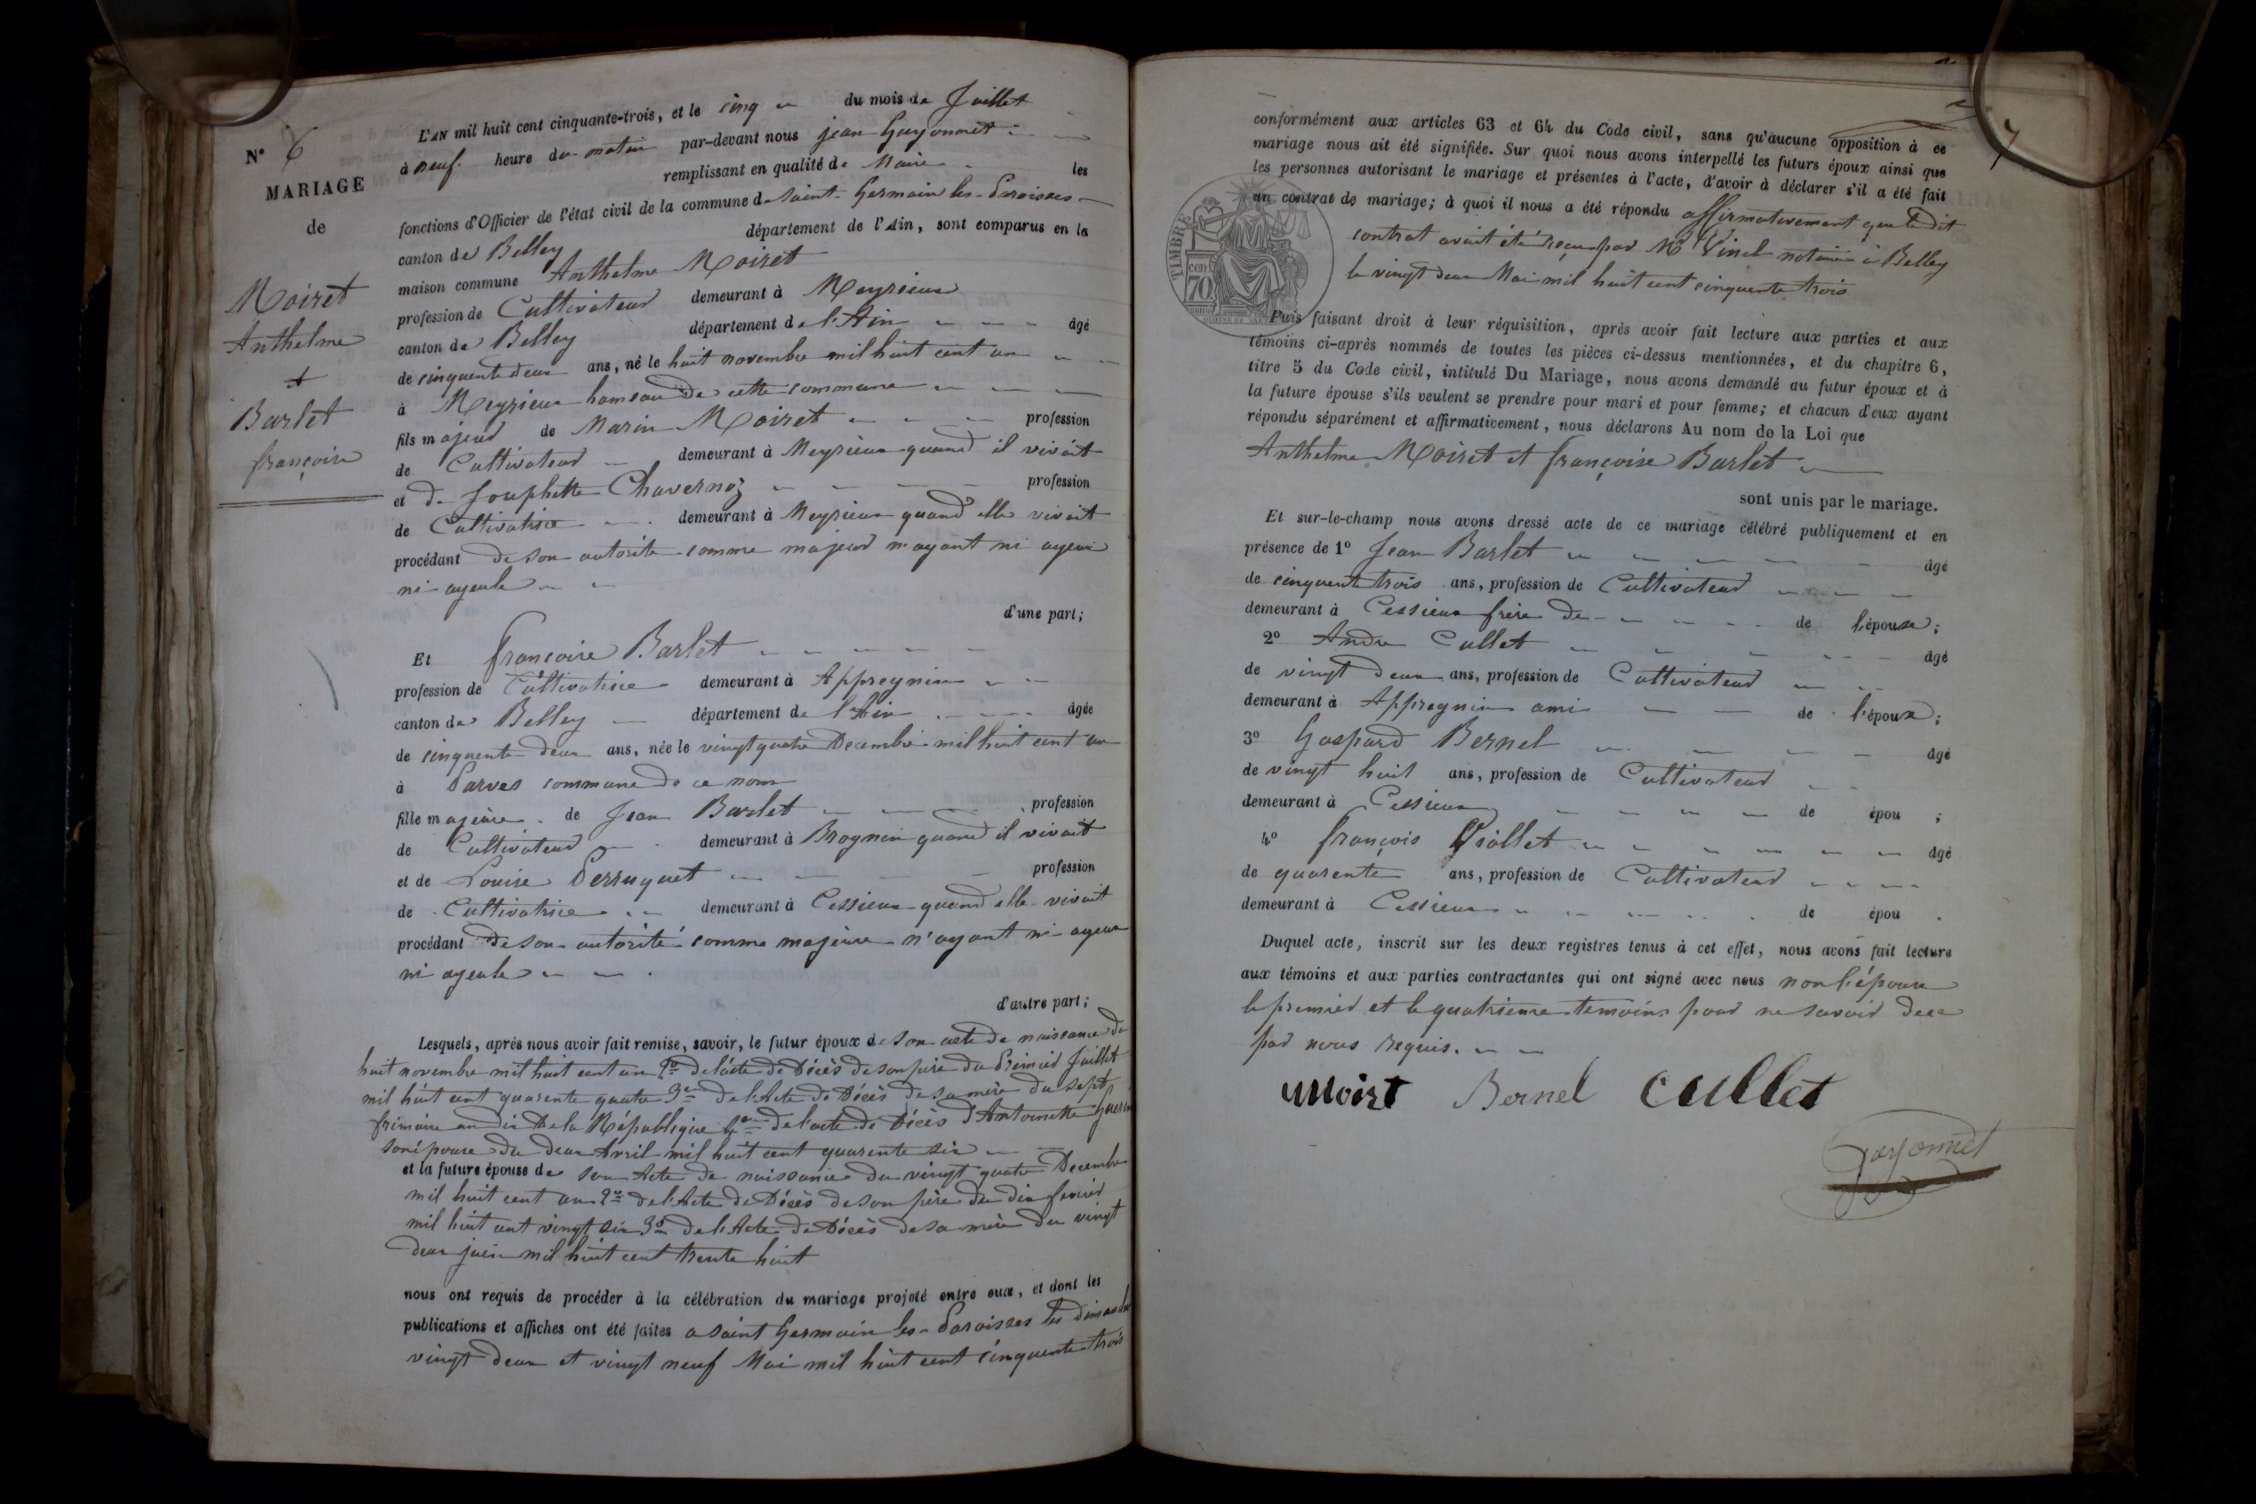 N° 6
MARIAGE
de
Moiret
Anthelme
+
Barlet
françoise
L'AN mil huit cent cinquante-trois, et le cinq du mois de Juillet
à neuf heure du matin par-devant nous jean Goyonnet
remplissant en qualité de Maire les
fonctions d'Officier de l'état civil de la commune de Saint-Germain les-Paroisses
canton de Belley département de l'Ain, sont comparus en la
maison commune Anthelme Moiret
profession de Cultivateur demeurant à Meyrieux
canton de Belley département de l'Ain âgé
de cinquante deux ans, né le huit novembre mil huit cent un
à Meyrieux hameau de cette commune
fils majeur de Marin Moiret profession
de Cultivateur demeurant à Meyrieux quand il vivait
et de Josephette Chavernoz profession
de Cultivatrice demeurant à Meyrieux quand elle vivait
procédant de son autorité comme majeur n'ayant ni ayeux
ni ayeule
d'une part;
Et françoise Barlet
profession de Cultivatrice demeurant à Appregnin
canton de Belley département de l'Ain âgée
de cinquante deux ans, née le vingt quatre Decembre mil huit cent un
à Parves commune de ce nom
fille majeure de Jean Barlet profession
de Cultivateur demeurant à Brognin quand il vivait
et de Louise Perruquet profession
de Cultivatrice demeurant à Cessieux quand elle vivait
procédant de son autorité comme majeure n'ayant ni ayeux
ni ayeule
d'autre part;
Lesquels, après nous avoir fait remise, savoir, le futur époux de son acte de naissance du
huit novembre mil huit cent un 2° de l'acte de Décès de son père du Premier Juillet
mil huit cent quarante quatre 3° de l'Acte de Décès de sa mère du sept
frimaire an dix de la République 4° de l'acte de Décès d'Antoinette
son épouse du deux Avril mil huit cent quarante six
et la future épouse de son Acte de naissance du vingt quatre Decembre
mil huit cent un 2° de l'Acte de Décès de son père du dix fevrier
mil huit cent vingt six 3° de l'Acte de Décès de sa mère du vingt
deux juin mil huit cent trente huit
nous ont requis de procéder à la célébration du mariage projeté entre eux, et dont les
publications et affiches ont été faites a saint Germain les-Paroisses les dimanche
vingt deux et vingt neuf Mai mil huit cent cinquante trois
7
conformément aux articles 63 et 64 du Code civil, sans qu'aucune opposition à ce
mariage nous ait été signifiée. Sur quoi nous avons interpellé les futurs époux ainsi que
les personnes autorisant le mariage et présentes à l'acte, d'avoir à déclarer s'il a été fait
un contrat de mariage; à quoi il nous a été répondu affirmativement que ledit
contrat avait été reçu par Me Vinel notaire à Belley
le vingt deux Mai mil huit cent cinquante trois
TIMBRE
cen
70
Puis faisant droit à leur réquisition, après avoir fait lecture aux parties et aux
témoins ci-après nommés de toutes les pièces ci-dessus mentionnées, et du chapitre 6,
titre 5 du Code civil, intitulé Du Mariage, nous avons demandé au futur époux et à
la future épouse s'ils veulent se prendre pour mari et pour femme; et chacun d'eux ayant
répondu séparément et affirmativement, nous déclarons Au nom de la Loi que
Anthelme Moiret et françoise Barlet
sont unis par le mariage.
Et sur-le-champ nous avons dressé acte de ce mariage célébré publiquement et en
présence de 1° Jean Barlet âgé
de cinquante trois ans, profession de Cultivateur
demeurant à Cessieux frère de de l'épouse;
2° Andre Cullet âgé
de vingt deux ans, profession de Cultivateur
demeurant à Appregnin ami de l'époux;
3° Gaspard Bernel âgé
de vingt huit ans, profession de Cultivateur
demeurant à Cessieux de épou ;
4° françois Giollet âgé
de quarente ans, profession de Cultivateur
demeurant à Cessieux de épou .
Duquel acte, inscrit sur les deux registres tenus à cet effet, nous avons fait lecture
aux témoins et aux parties contractantes qui ont signé avec nous non l'épouse
le premier et le quatrieme temoins pour ne savoir de ce
par nous requis.
Moiret Bernel Cullet
Goyonnet